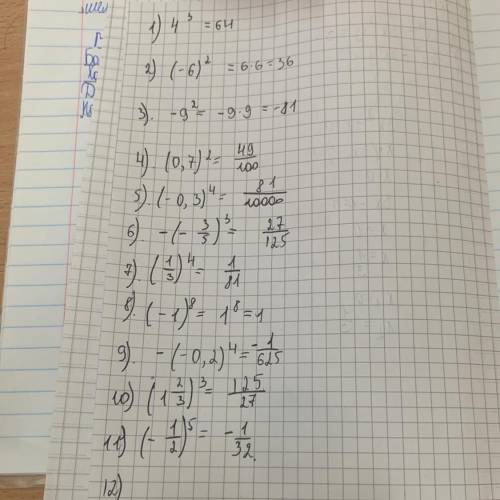 1) 4³ = 64
2) (-6)² = 6·6 = 36
3). -9² = -9·9 = -81
4). (0,7)² = 49/100
5). (-0,3)⁴ = 81/10000
6). -(-3/5)³ = 27/125
7). (1/3)⁴ = 1/81
8). (-1)⁸ = 1⁸ = 1
9). -(-0,2)⁴ = -1/625
10) (1 2/3)³ = 125/27
11) (-1/2)⁵ = -1/32.
12)